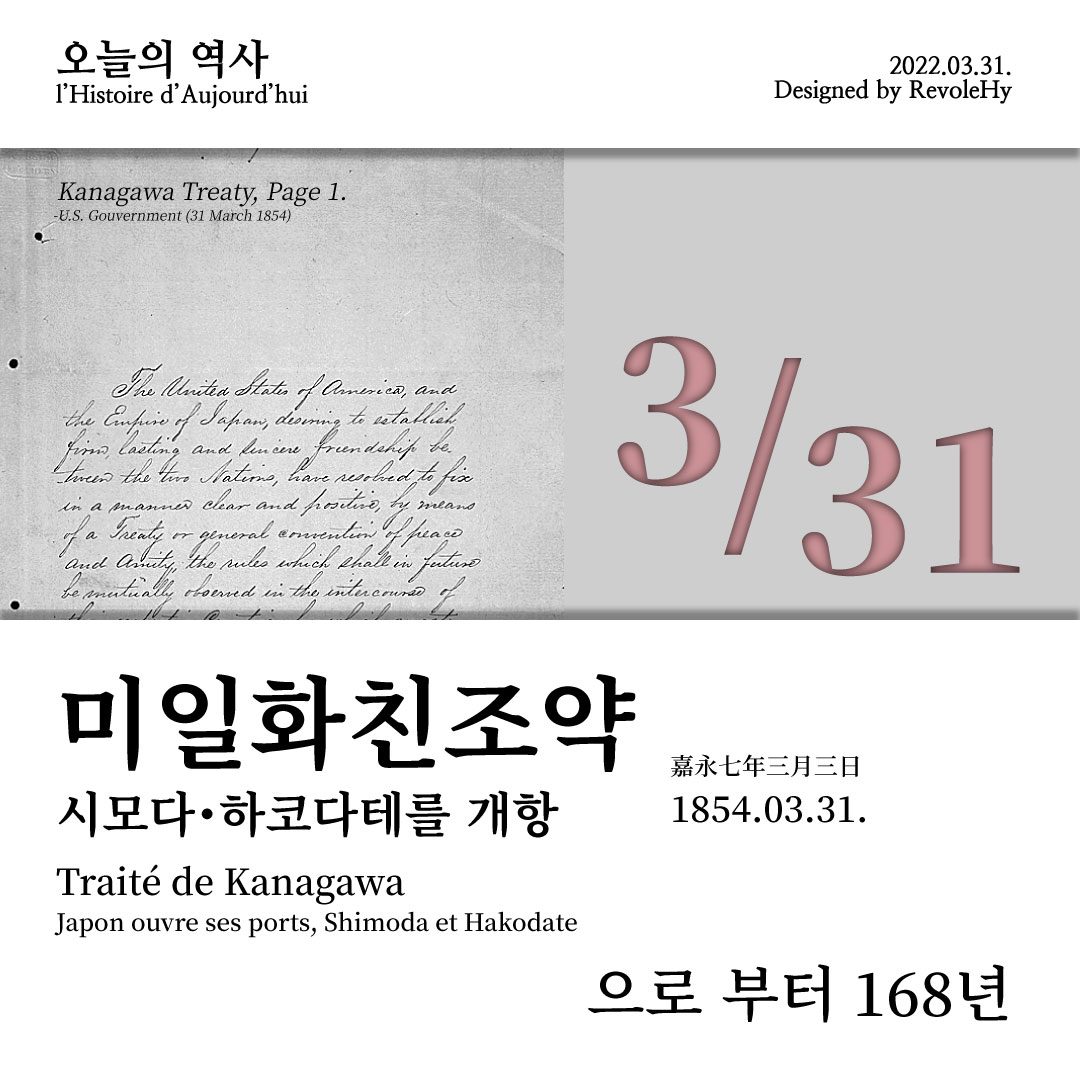 오늘의 역사
l'Histoire d'Aujourd'hui
2022.03.31.
Designed by RevoleHy
Kanagawa Treaty, Page 1.
-U.S. Gouvernment (31 March 1854)
The United States of America, and
the Empire of Japan, desiring to establish
firm, lasting and sincere friendship be-
tween the two Nations, have resolved to fix
in a manner clear and positive, by means
of a Treaty or general convention of peace
and Amity, the rules which shall in future
be mutually observed in the intercourse of
3/31
미일화친조약
시모다•하코다테를 개항
嘉永七年三月三日
1854.03.31.
Traité de Kanagawa
Japon ouvre ses ports, Shimoda et Hakodate
으로 부터 168년